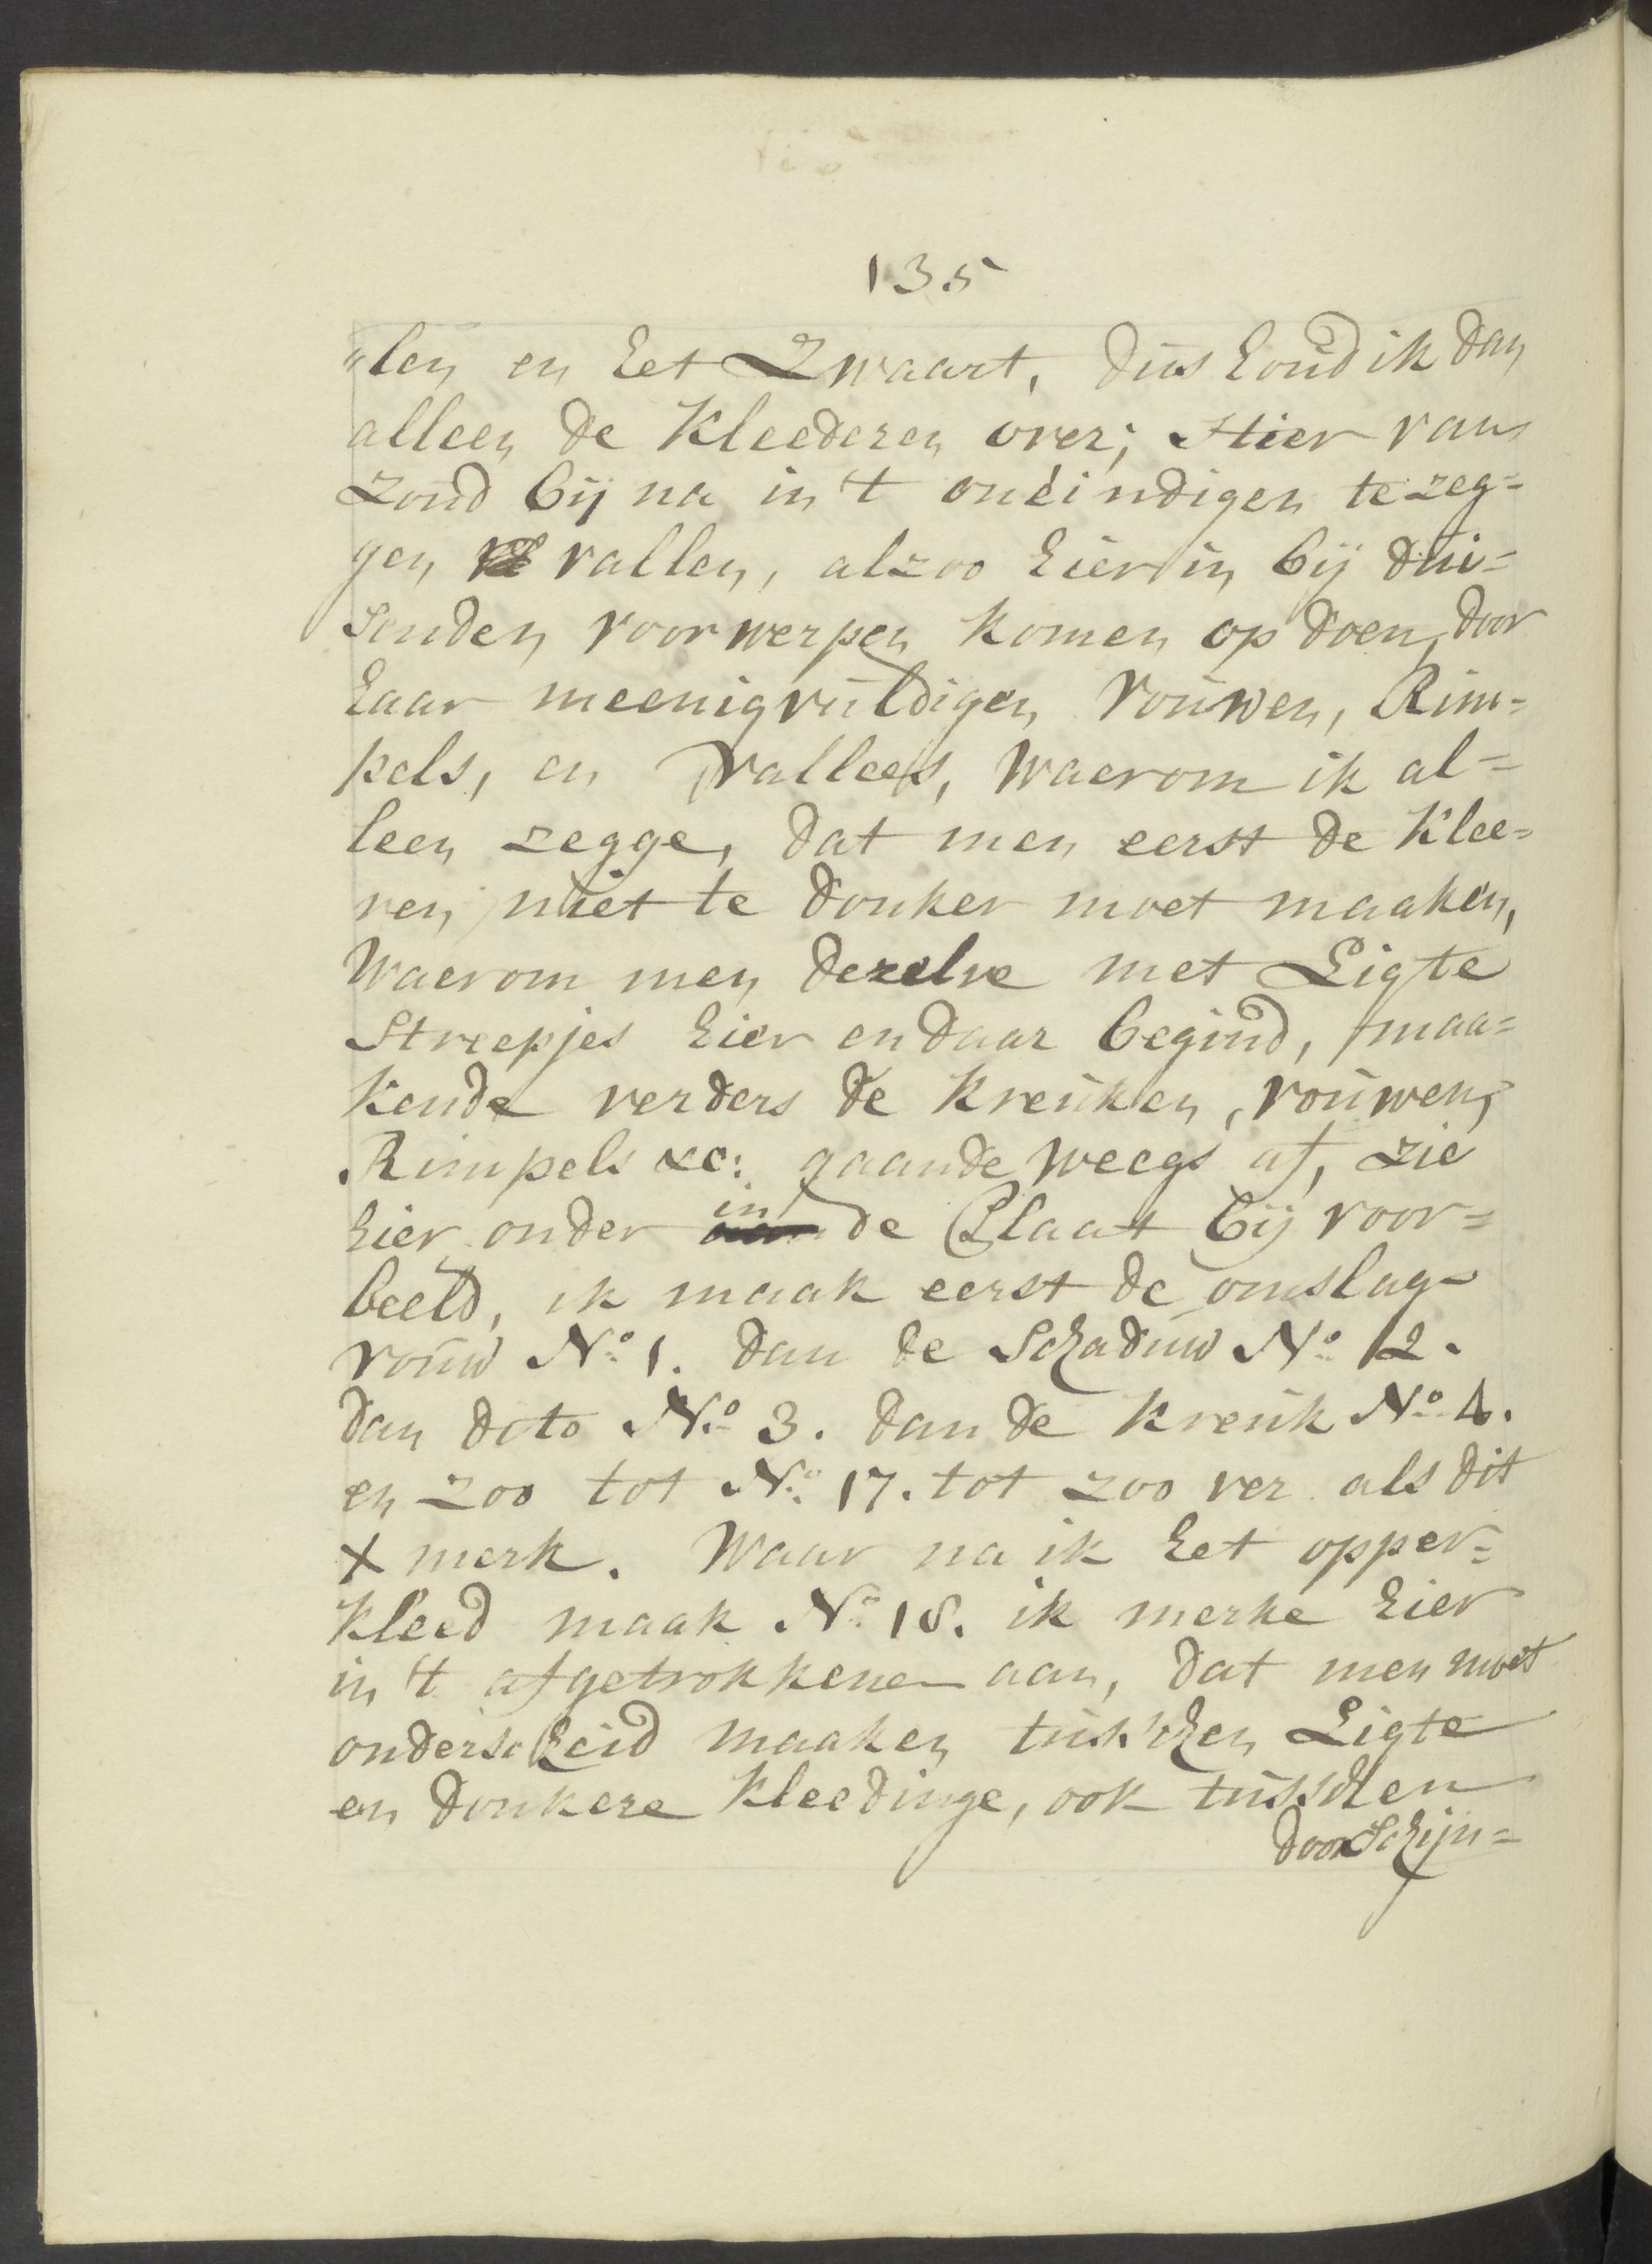 135
"len en het Zwaart, dus houd ik dan
alleen de Kleederen over; Hier van
zoud bij na in 't oneindigen te zeg=
gen vallen, alzoo hier in bij dui=
senden voorwerpen komen op doen, door
haar meenigvuldigen vouwen, Rim=
pels, en vallees, waerom ik al=
leen zegge, dat men eerst de klee=
ren niet te donker moet maaken,
waerom men dezelve met Ligte
Streepjes hier en daar begind, maa=
kende verders de kreuken, vouwen,
Rimpels &c: gaande weegs af, zie
hier onder in de Plaat bij voor=
beeld, ik maak eerst de omslag=
vouw No. 1. dan de Schaduw No. 2.
dan doto No. 3. dan de kreuk No. 4.
en zoo tot No. 17. tot zoo ver als dit
X merk. Waar na ik het opper=
kleed maak No. 18. ik merke hier
in 't afgetrokkene aan, dat men moet
onderscheid maaken tusschen Ligte
en donkere kleedinge, ook tusschen
doorschijn=